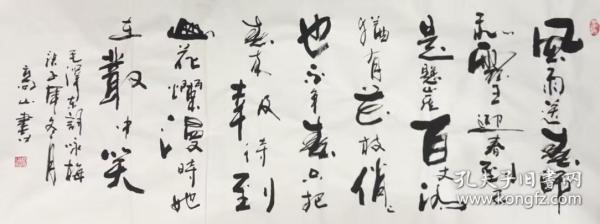 風雨送春歸
飛雪迎春到已
是懸崖百丈冰
猶有花枝俏
也不爭春只把
春來報待到
山花爛漫時她
在叢中笑
毛澤東詞詠梅
子年冬月
山書
孔夫子旧书网
book.kongfz.com